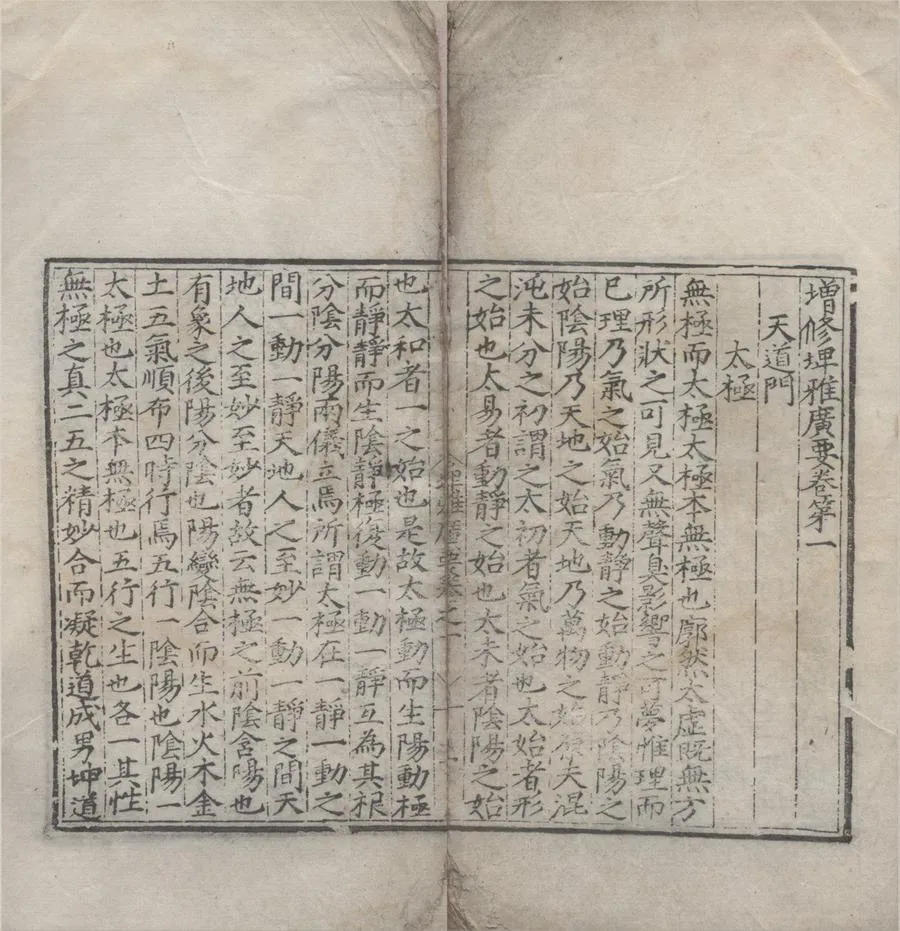 增修埤雅廣要卷第一
天道門
太極
無極而太極太極本無極也廓然太虛既無方
所形狀之可見又無聲臭影響之可夢惟理而
巳理乃氣之始氣乃動靜之始動靜乃陰陽之
始陰陽乃天地之始天地乃萬物之始 天混
沌未分之初謂之太初者氣之始也太始者形
之始也太易者動靜之始也太未者陰陽之始
埤雅廣要卷之一
也太和者一之始也是故太極動而生陽動極
而靜靜而生陰靜極復動一動一靜互為其根
分陰分陽兩儀立焉所謂太極在一靜一動之
間一動一靜天地人之至妙一動一靜之間天
地人之至妙至妙者故云無極之前陰含陽也
有象之後陽分陰也陽變陰合而生水火木金
土五氣順布四時行焉五行一陰陽也陰陽一
太極也太極本無極也五行之生也各一其性
無極之真二五之精妙合而凝乾道成男坤道